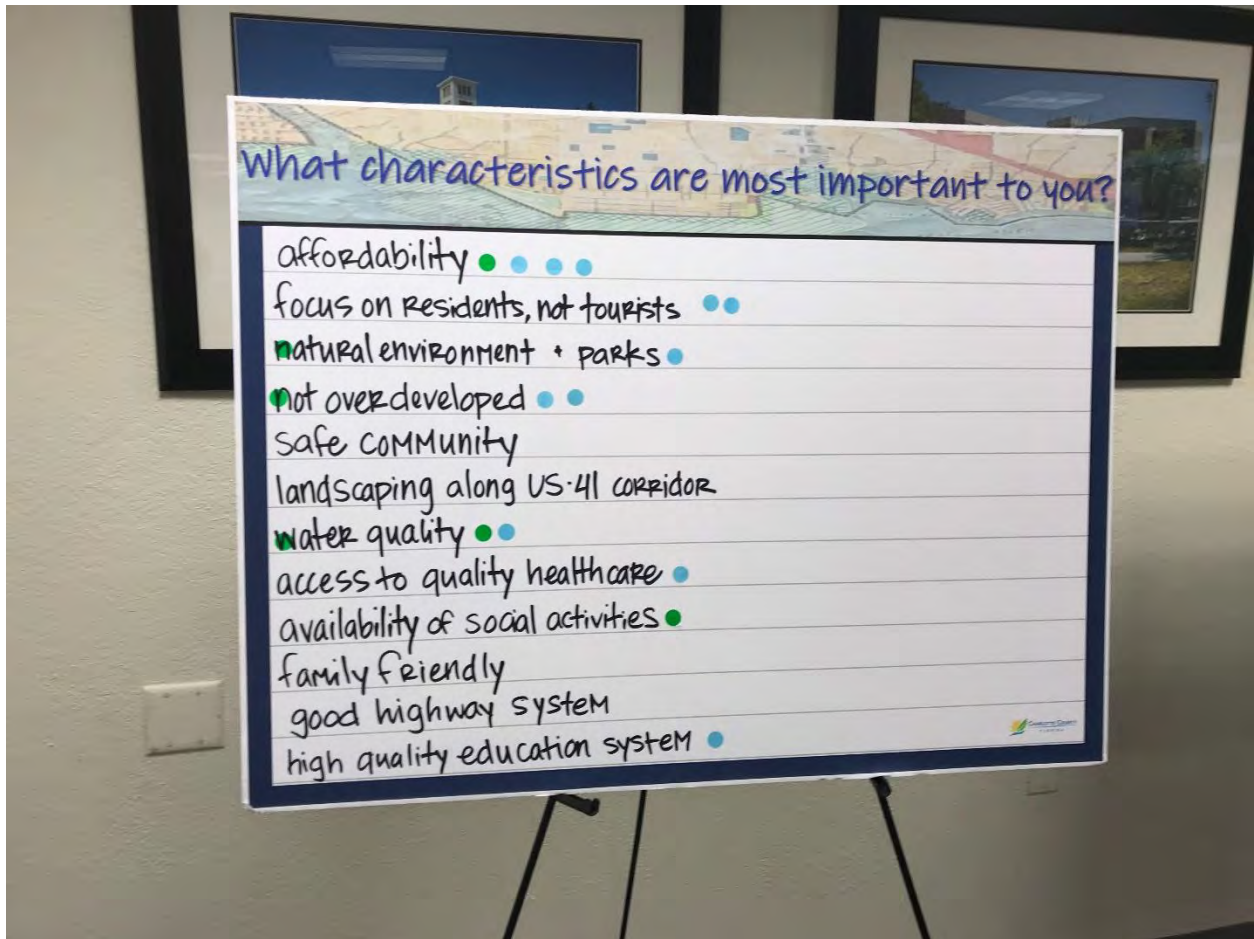 What characteristics are most important to you?
affordability
focus on residents, not tourists
natural environment + parks
not overdeveloped
safe community
landscaping along US-41 corridor
water quality
access to quality healthcare
availability of social activities
family friendly
good highway system
high quality education system